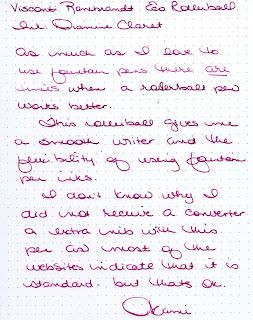 Visconti Rembrandt Eco Rollerball
Ink: Diamine Claret
As much as I love to
use fountain pens there are
times when a rollerball pen
works better.
This rollerball gives me
a smooth writer and the
flexibility of using fountain
pen inks.
I don't know why I
did not receive a converter
a extra nib with this
pen as most of the
websites indicate that it is
standard. but thats ok.
Okami